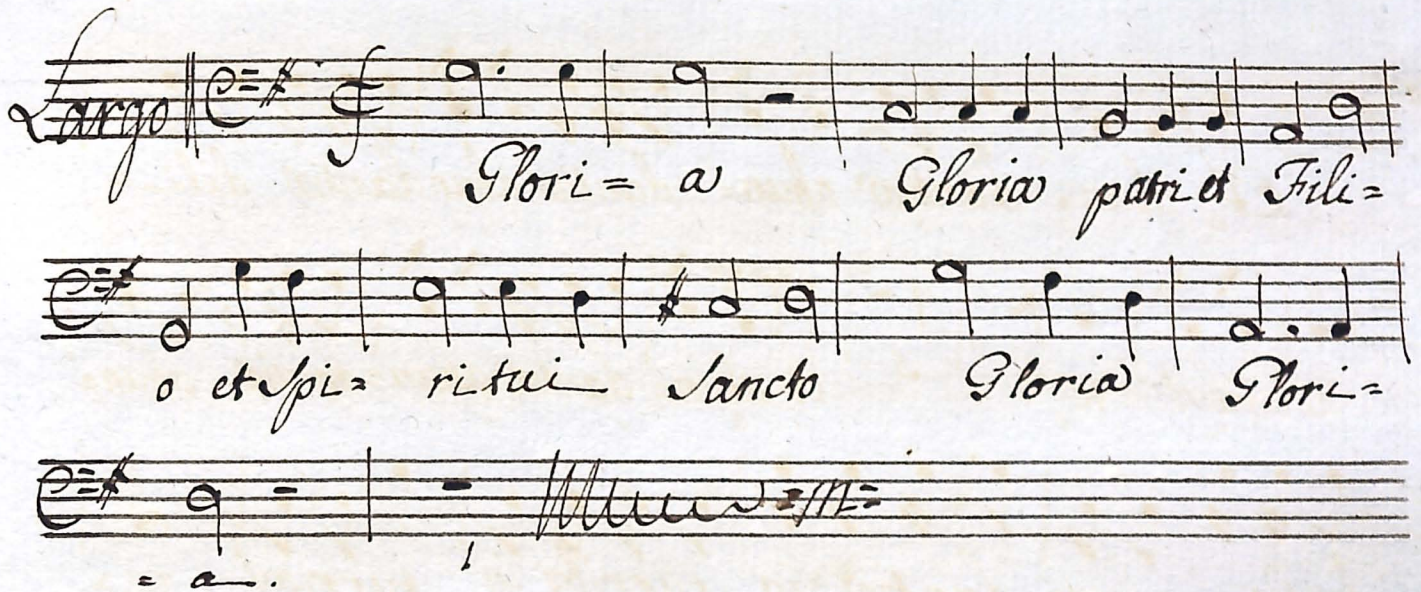 Largo
Glori= a Gloria patri et Fili=
o et Spi= ritui Sancto Gloria Glori=
= a.
1